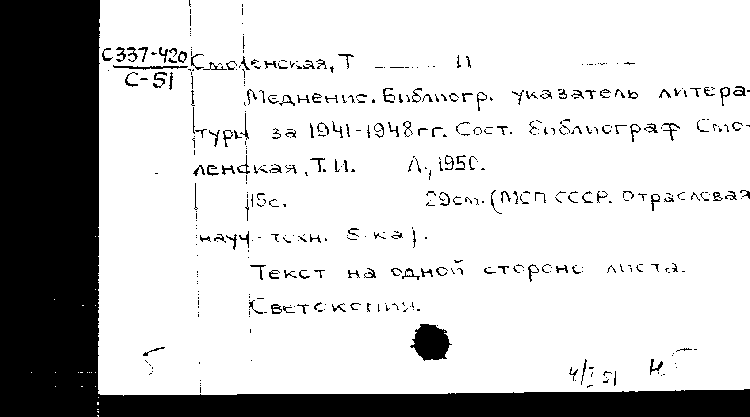 С337-420 Смоленская, Т И
С-51
Меднение. Библиогр. указатель литера-
туры за 1941-1948гг. Сост. библиограф Смо-
ленская, Т.И. Л., 1950.
15с. 29см. (МСП СССР. Отраслевая
науч.-техн. б-ка).
Текст на одной стороне листа.
Светокопия.
4/I 51